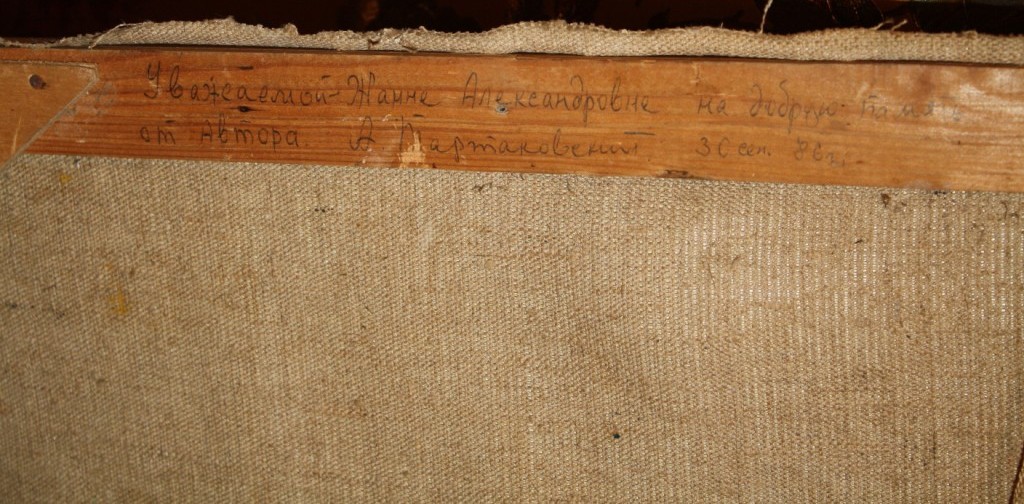 Уважаемой Жанне Александровне на добрую память
от Автора. А. Тартаковский. 30 сен. 86 г.